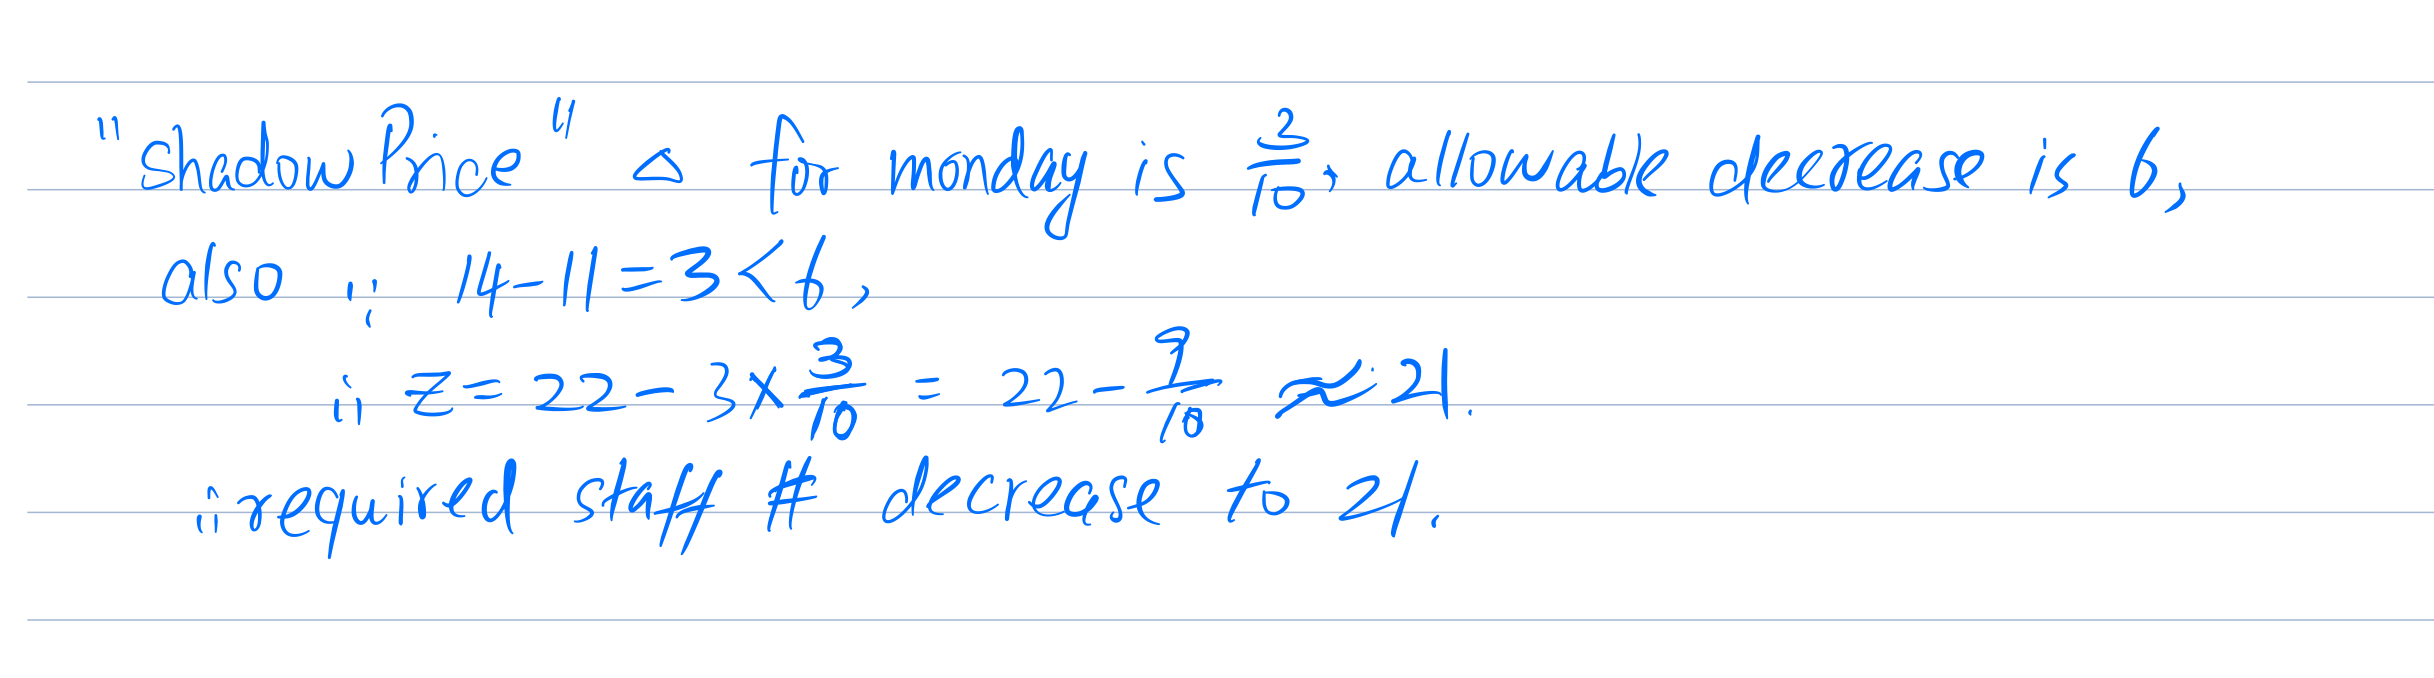 "Shadow Price" △ for monday is 3/10, allowable decrease is 6,
also ∵ 14-11=3<6,
∴ z = 22 - 3×3/10 = 22 - 9/10 ≈ 21.
∴ required staff # decrease to 21.